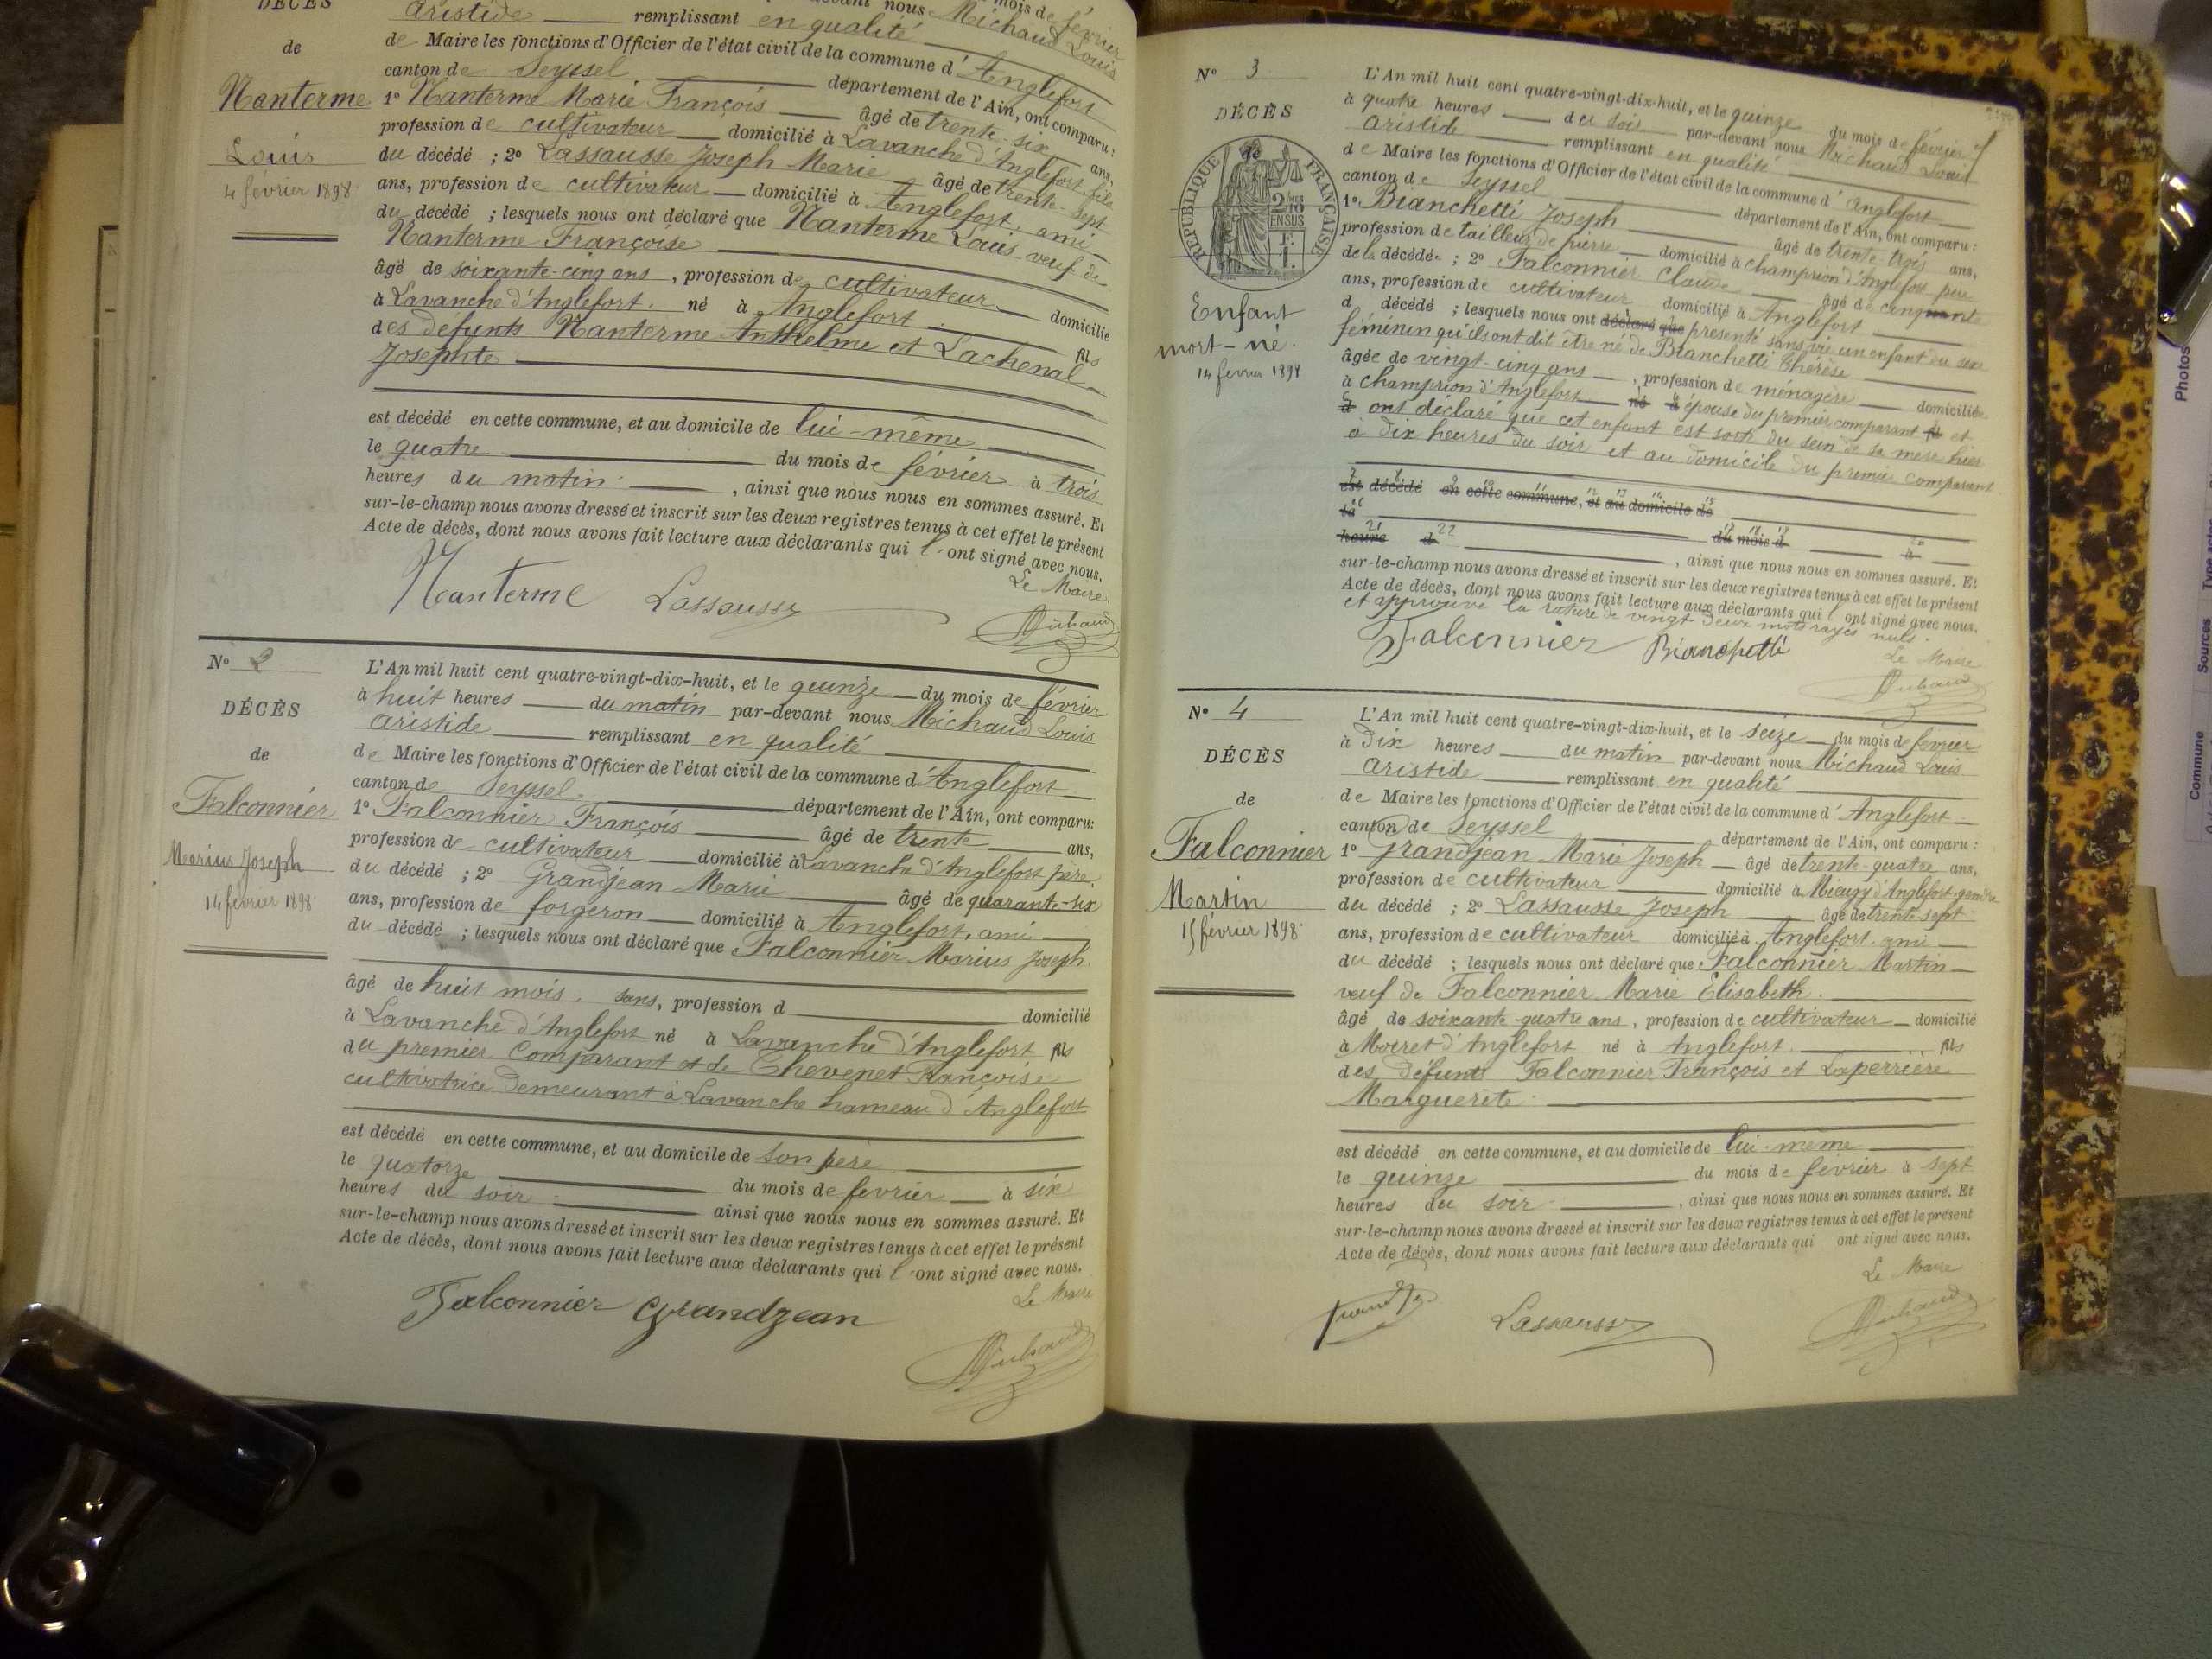 DÉCÈS
de
Nanterme
Louis
4 février 1898
mois de février
Michaud Louis
Aristide remplissant en qualité
de Maire les fonctions d'Officier de l'état civil de la commune d'Anglefort
canton de Seyssel département de l'Ain, ont comparu :
1º Nanterme Marie François âgé de trente-six ans,
profession de cultivateur domicilié à Lavanche d'Anglefort fils
du décédé ; 2º Lassausse Joseph Marie âgé de trente-sept
ans, profession de cultivateur domicilié à Anglefort, ami
du décédé ; lesquels nous ont déclaré que Nanterme Louis veuf de
Nanterme Françoise
âgé de soixante-cinq ans, profession de cultivateur domicilié
à Lavanche d'Anglefort. né à Anglefort. fils
des défunts Nanterme Anthelme et Lachenal
Josephte
est décédé en cette commune, et au domicile de lui-même
le quatre du mois de février à trois
heures du matin, ainsi que nous nous en sommes assuré. Et
sur-le-champ nous avons dressé et inscrit sur les deux registres tenus à cet effet le présent
Acte de décès, dont nous avons fait lecture aux déclarants qui l'ont signé avec nous.
Le Maire
Nanterme Lassausse
Michaud
Nº 2
DÉCÈS
de
Falconnier
Marius Joseph
14 février 1898
L'An mil huit cent quatre-vingt-dix-huit, et le quinze du mois de février
à huit heures du matin par-devant nous Michaud Louis
Aristide remplissant en qualité
de Maire les fonctions d'Officier de l'état civil de la commune d'Anglefort
canton de Seyssel département de l'Ain, ont comparu :
1º Falconnier François âgé de trente ans,
profession de cultivateur domicilié à Lavanche d'Anglefort père
du décédé ; 2º Grandjean Marie âgé de quarante-six
ans, profession de forgeron domicilié à Anglefort, ami
du décédé ; lesquels nous ont déclaré que Falconnier Marius Joseph.
âgé de huit mois. sans, profession d domicilié
à Lavanche d'Anglefort né à Lavanche d'Anglefort fils
du premier Comparant et de Chevenet Françoise
cultivatrice demeurant à Lavanche hameau d'Anglefort
est décédé en cette commune, et au domicile de son père
le quatorze du mois de février à six
heures du soir ainsi que nous nous en sommes assuré. Et
sur-le-champ nous avons dressé et inscrit sur les deux registres tenus à cet effet le présent
Acte de décès, dont nous avons fait lecture aux déclarants qui l'ont signé avec nous.
Le Maire
Falconnier Grandjean
Michaud
Nº 3
DÉCÈS
de
RÉPUBLIQUE FRANÇAISE
2/10
EN SUS
F.
1.
Enfant
mort-né.
14 février 1898
L'An mil huit cent quatre-vingt-dix-huit, et le quinze du mois de février
à quatre heures du soir par-devant nous Michaud Louis
Aristide remplissant en qualité
de Maire les fonctions d'Officier de l'état civil de la commune d'Anglefort
canton de Seyssel département de l'Ain, ont comparu :
1º Bianchetti Joseph âgé de trente-trois ans,
profession de tailleur de pierre domicilié à Champrion d'Anglefort père
de la décédée ; 2º Falconnier Claude âgé de cinquante
ans, profession de cultivateur domicilié à Anglefort
d décédé ; lesquels nous ont déclaré que présenté sans vie un enfant du sexe
féminin qu'ils ont dit être né de Bianchetti Thérèse
âgée de vingt-cinq ans, profession de ménagère domiciliée
à Champrion d'Anglefort né à épouse du premier comparant fil et
d ont déclaré que cet enfant est sorti du sein de sa mère hier
à dix heures du soir et au domicile du premier comparant
est décédé en cette commune, et au domicile de
le
du mois d à
heure d
, ainsi que nous nous en sommes assuré. Et
sur-le-champ nous avons dressé et inscrit sur les deux registres tenus à cet effet le présent
Acte de décès, dont nous avons fait lecture aux déclarants qui l'ont signé avec nous.
et approuvé la rature de vingt deux mots rayés nuls.
Le Maire
Falconnier Bianchetti
Michaud
Nº 4
DÉCÈS
de
Falconnier
Martin
15 février 1898
L'An mil huit cent quatre-vingt-dix-huit, et le seize du mois de février
à dix heures du matin par-devant nous Michaud Louis
Aristide remplissant en qualité
de Maire les fonctions d'Officier de l'état civil de la commune d'Anglefort
canton de Seyssel département de l'Ain, ont comparu :
1º Grandjean Marie Joseph âgé de trente-quatre ans,
profession de cultivateur domicilié à Mieugy d'Anglefort gendre
du décédé ; 2º Lassausse Joseph âgé de trente sept
ans, profession de cultivateur domicilié à Anglefort. ami
du décédé ; lesquels nous ont déclaré que Falconnier Martin
veuf de Falconnier Marie Elisabeth.
âgé de soixante-quatre ans, profession de cultivateur domicilié
à Moiret d'Anglefort né à Anglefort. fils
des défunts Falconnier François et Laperrière
Marguerite
est décédé en cette commune, et au domicile de lui-même
le quinze du mois de février à sept
heures du soir, ainsi que nous nous en sommes assuré. Et
sur-le-champ nous avons dressé et inscrit sur les deux registres tenus à cet effet le présent
Acte de décès, dont nous avons fait lecture aux déclarants qui ont signé avec nous.
Le Maire
Lassausse
Michaud
Photos
Type acte
Sources
Commune